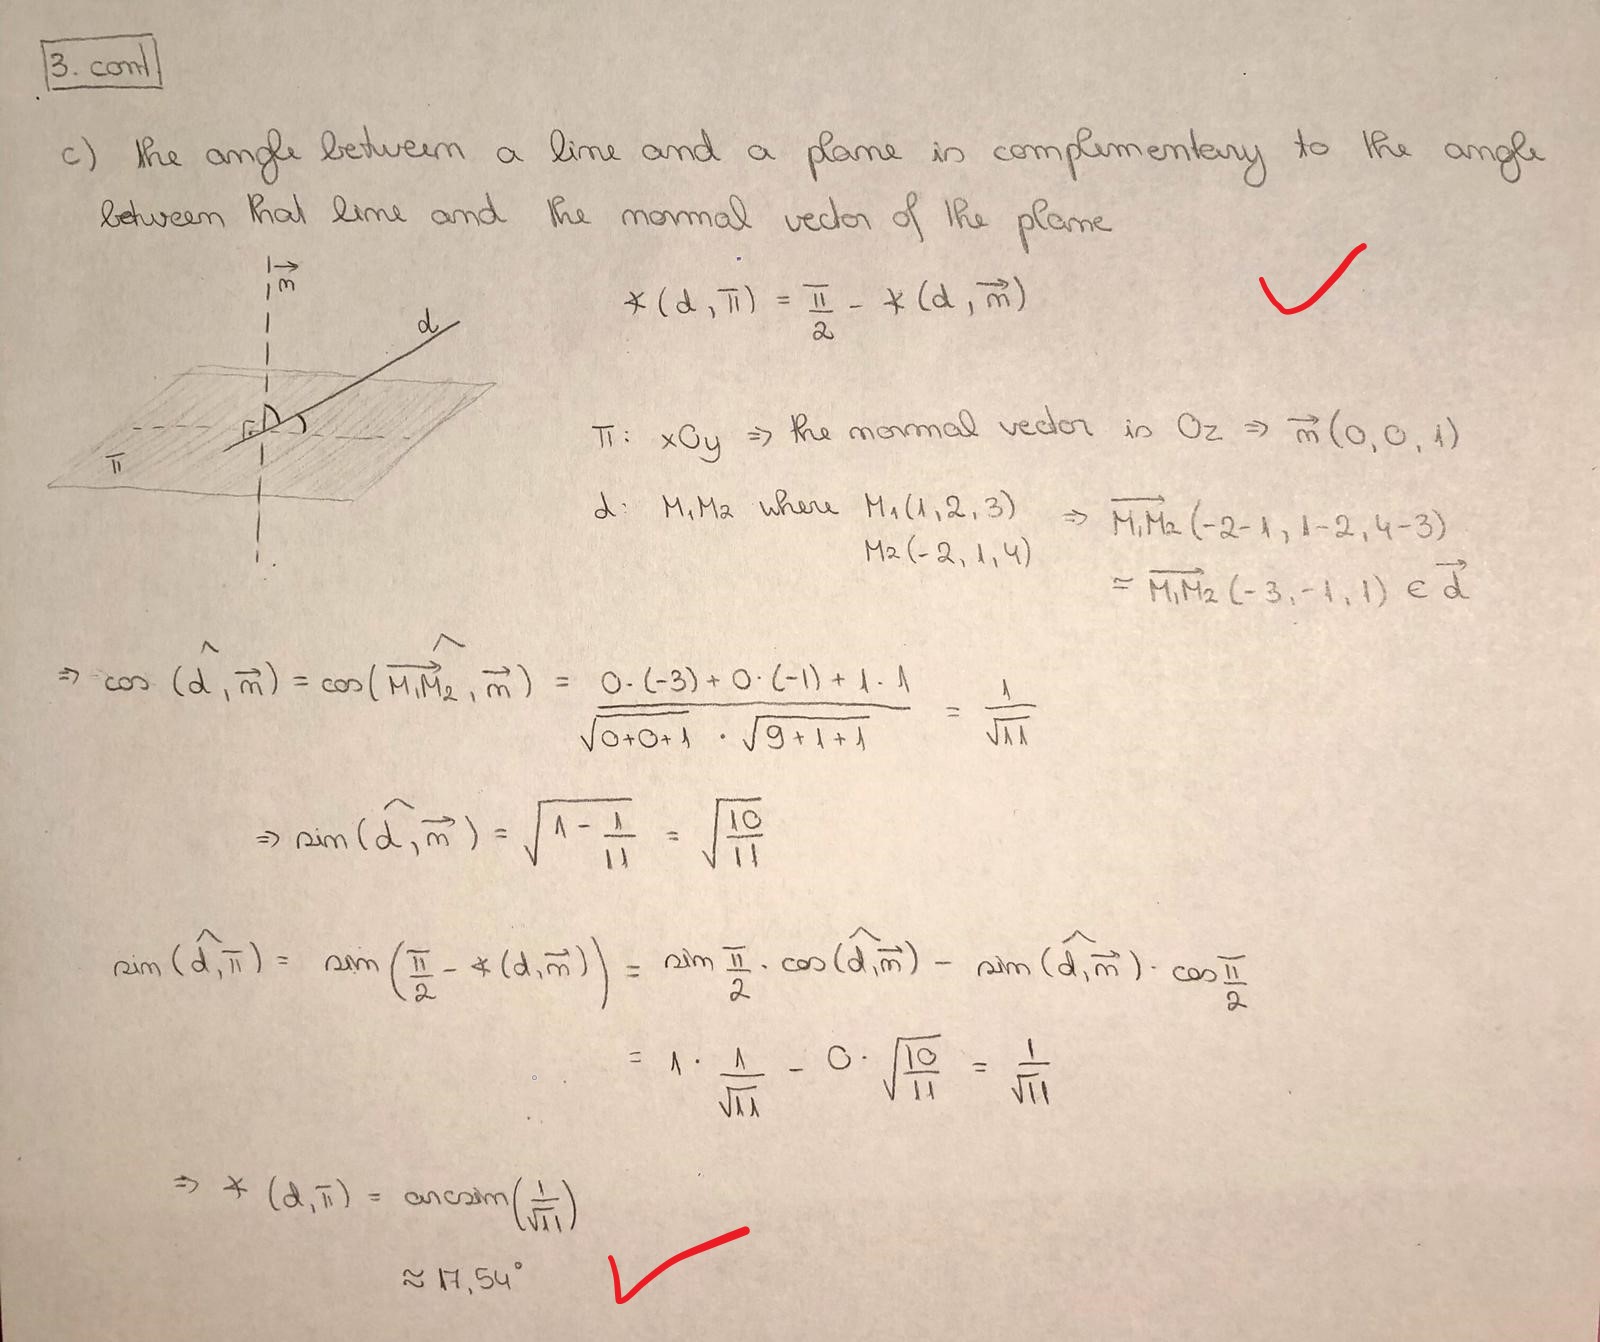 3. cont
c) the angle between a line and a plane is complementary to the angle
between that line and the normal vector of the plane
n⃗
d
π
∢(d, π) = π/2 - ∢(d, n⃗)
π: xOy ⇒ the normal vector is Oz ⇒ n⃗(0, 0, 1)
d: M₁M₂ where M₁(1, 2, 3) ⇒ M₁M₂⃗ (-2-1, 1-2, 4-3)
M₂(-2, 1, 4)
≈ M₁M₂⃗ (-3, -1, 1) ∈ d⃗
⇒ cos (d̂, n⃗) = cos(M₁M₂⃗, n⃗) = (0·(-3) + 0·(-1) + 1·1)/(√(0+0+1) · √(9+1+1)) = 1/√11
⇒ sin(d̂, n⃗) = √(1 - 1/11) = √(10/11)
sin(d̂, π) = sin(π/2 - ∢(d, n⃗)) = sin π/2 · cos(d̂, n⃗) - sin(d̂, n⃗) · cos π/2
= 1 · 1/√11 - 0 · √(10/11) = 1/√11
⇒ ∢ (d, π) = arcsin(1/√11)
≈ 17,54°